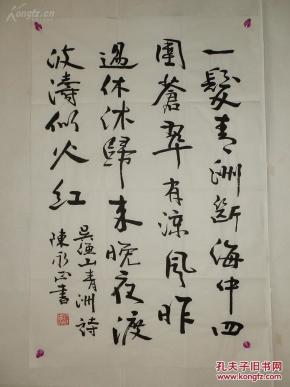 一髮青洲斷海中四
圍蒼翠有涼風昨
過休沐歸來晚夜渡
波濤似火紅
吳漁山青洲詩
陳永正書
孔夫子旧书网